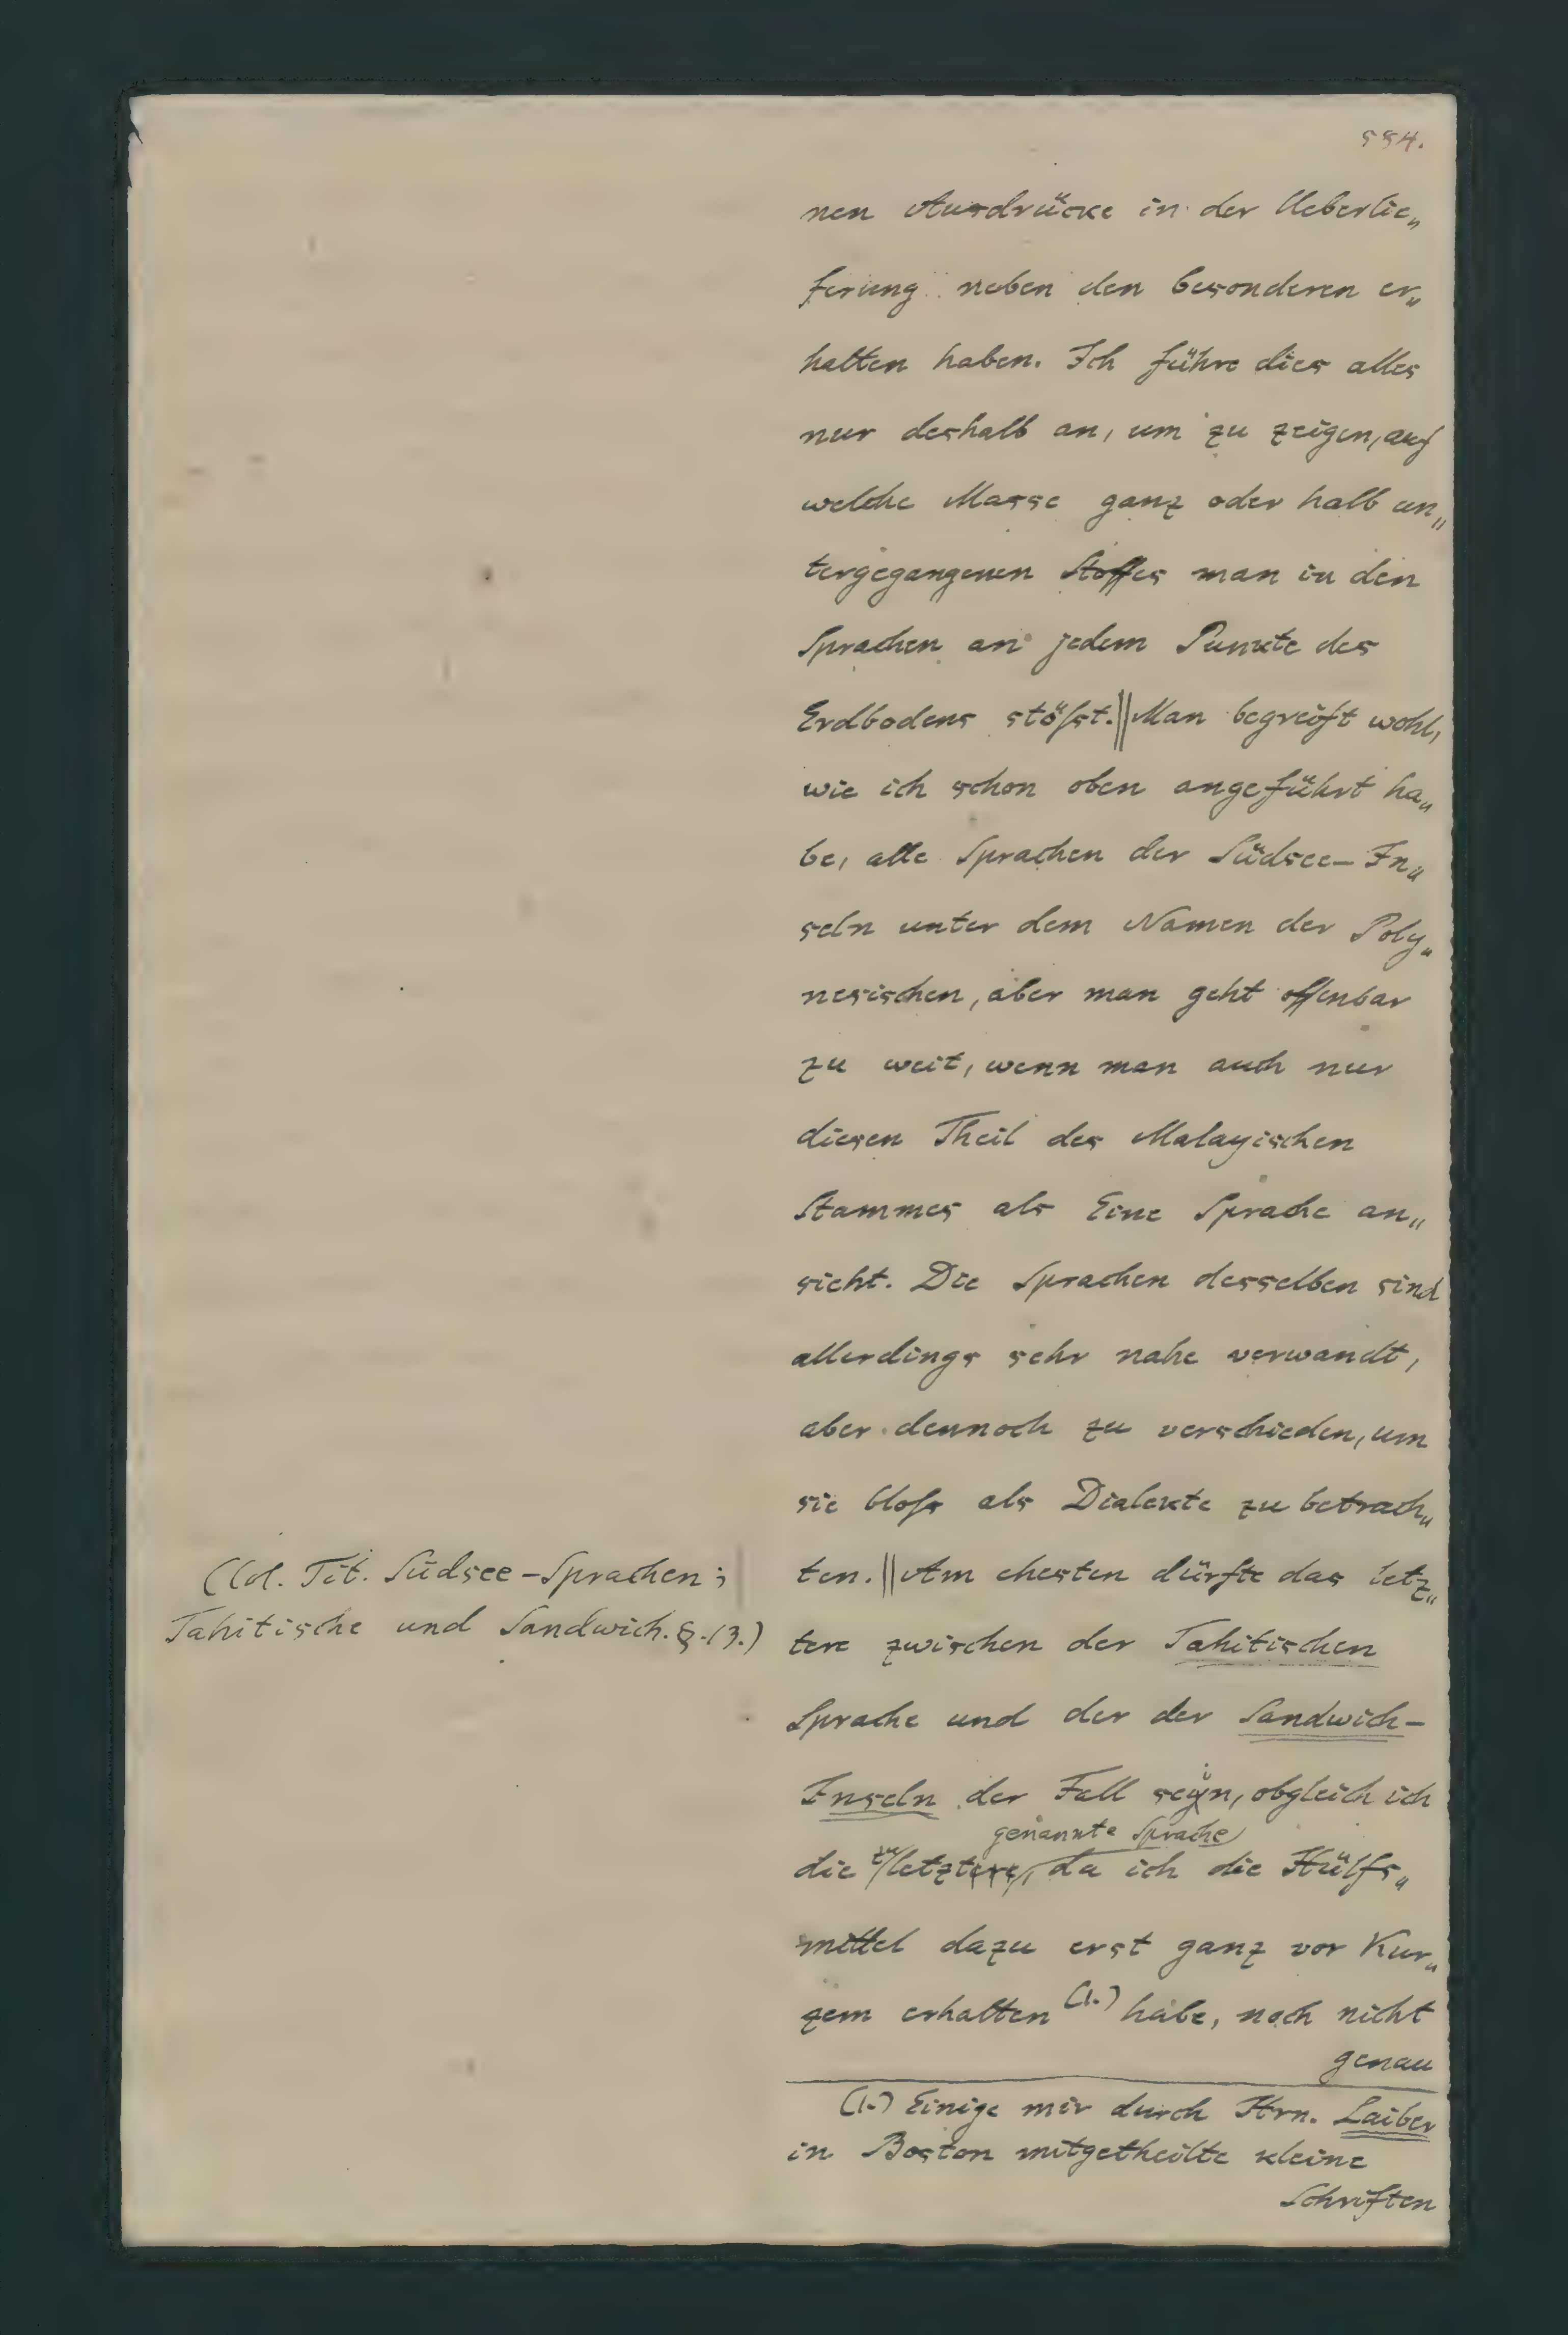 554.
nen Ausdrücke in der Ueberlie„
ferung neben den besonderen er„
halten haben. Ich führe dies alles
nur deshalb an, um zu zeigen, auf
welche Masse ganz oder halb un„
tergegangenen Stoffes man in den
Sprachen an jedem Punkte des
Erdbodens stößst.||Man begreift wohl,
wie ich schon oben angeführt ha„
be, alle Sprachen der Südsee-In„
seln unter dem Namen der Poly„
nesischen, aber man geht offenbar
zu weit, wenn man auch nur
diesen Theil des Malayischen
Stammes als Eine Sprache an„
sieht. Die Sprachen desselben sind
allerdings sehr nahe verwandt,
aber dennoch zu verschieden, um
sie bloſs als Dialekte zu betrach„
(Col. Tit. Südsee-Sprachen;
Tahitische und Sandwich. §. 13.)
ten.||Am ehesten dürfte das letz„
tere zwischen der Tahitischen
Sprache und der der Sandwich-
Inseln der Fall seyn, obgleich ich
genannte Sprache
die zu letztere, da ich die Hülfs„
mittel dazu erst ganz vor Kur„
zem erhalten (1.) habe, noch nicht
genau
(1.) Einige mir durch Hrn. Laiber
in Boston mitgetheilte kleine
Schriften